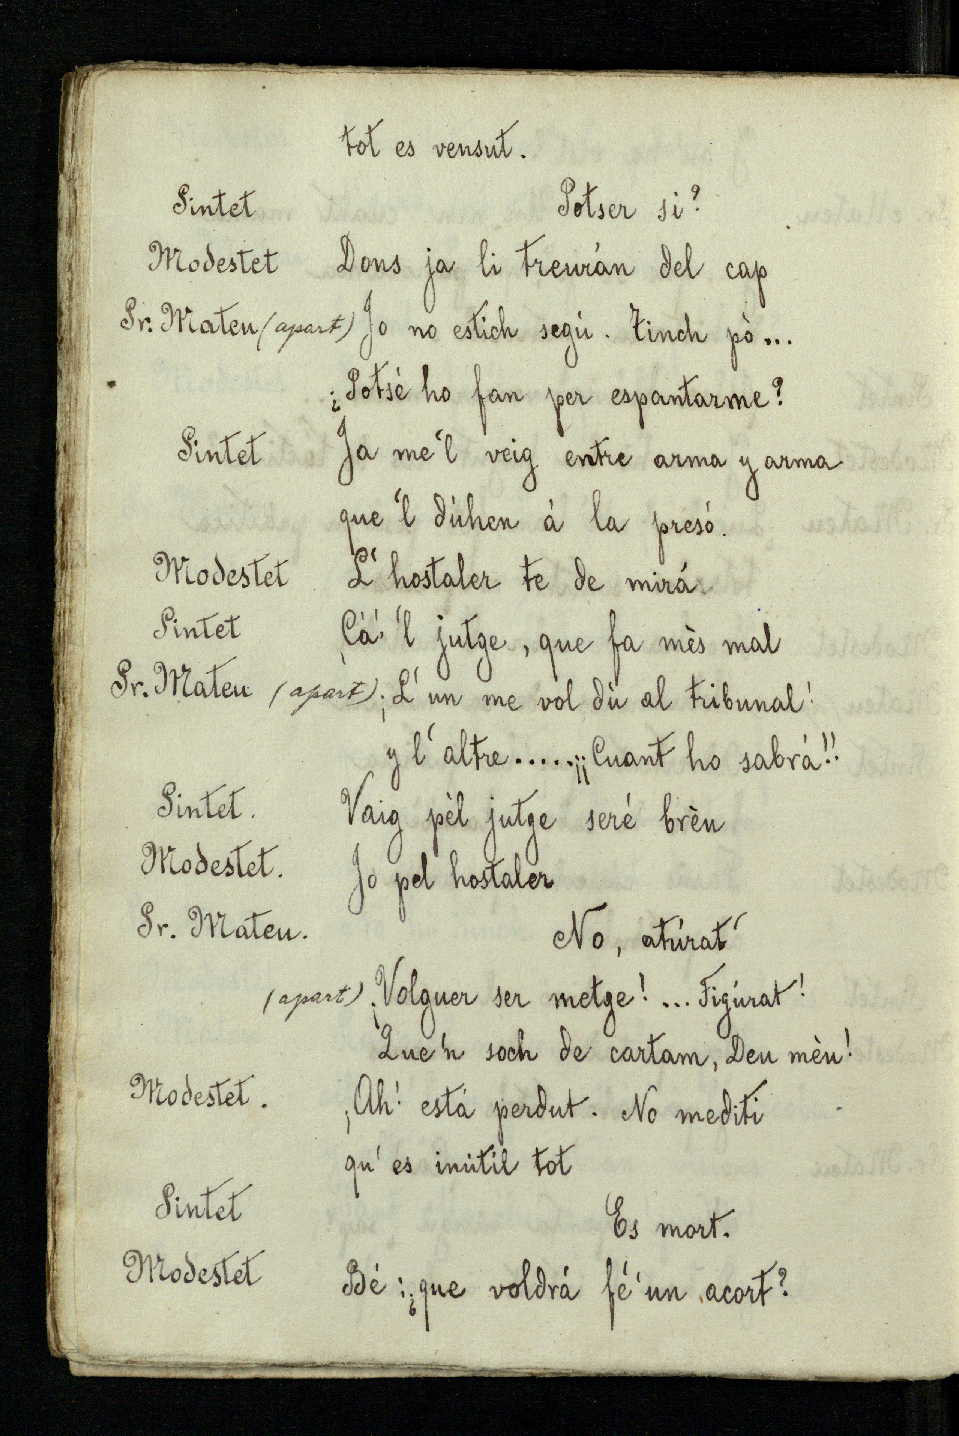 tot es vensut.
Sintet Potser si?
Modestet Dons ja li treurán del cap
Sr. Mateu (apart) Jo no estich segú. Tinch pò...
¿Potsé ho fan per espantarme?
Sintet Ja me'l veig entre arma y arma
que'l dúhen á la presó.
Modestet L'hostaler te de mirá
Sintet Cá! 'l jutge, que fa mès mal
Sr. Mateu (apart) ¡L'un me vol dù al tribunal!
y l'altre.....¡¡Cuant ho sabrá!!
Sintet. Vaig pèl jutge seré brèu
Modestet. Jo pel hostaler
Sr. Mateu. No, atúrat
(apart) ¡Volguer ser metge!... Figúrat!
Que'n soch de cartam, Deu mèu!
Modestet. ¡Ah! está perdut. No mediti
qu'es inútil tot
Sintet Es mort.
Modestet Bé: ¿que voldrá fé'un acort?